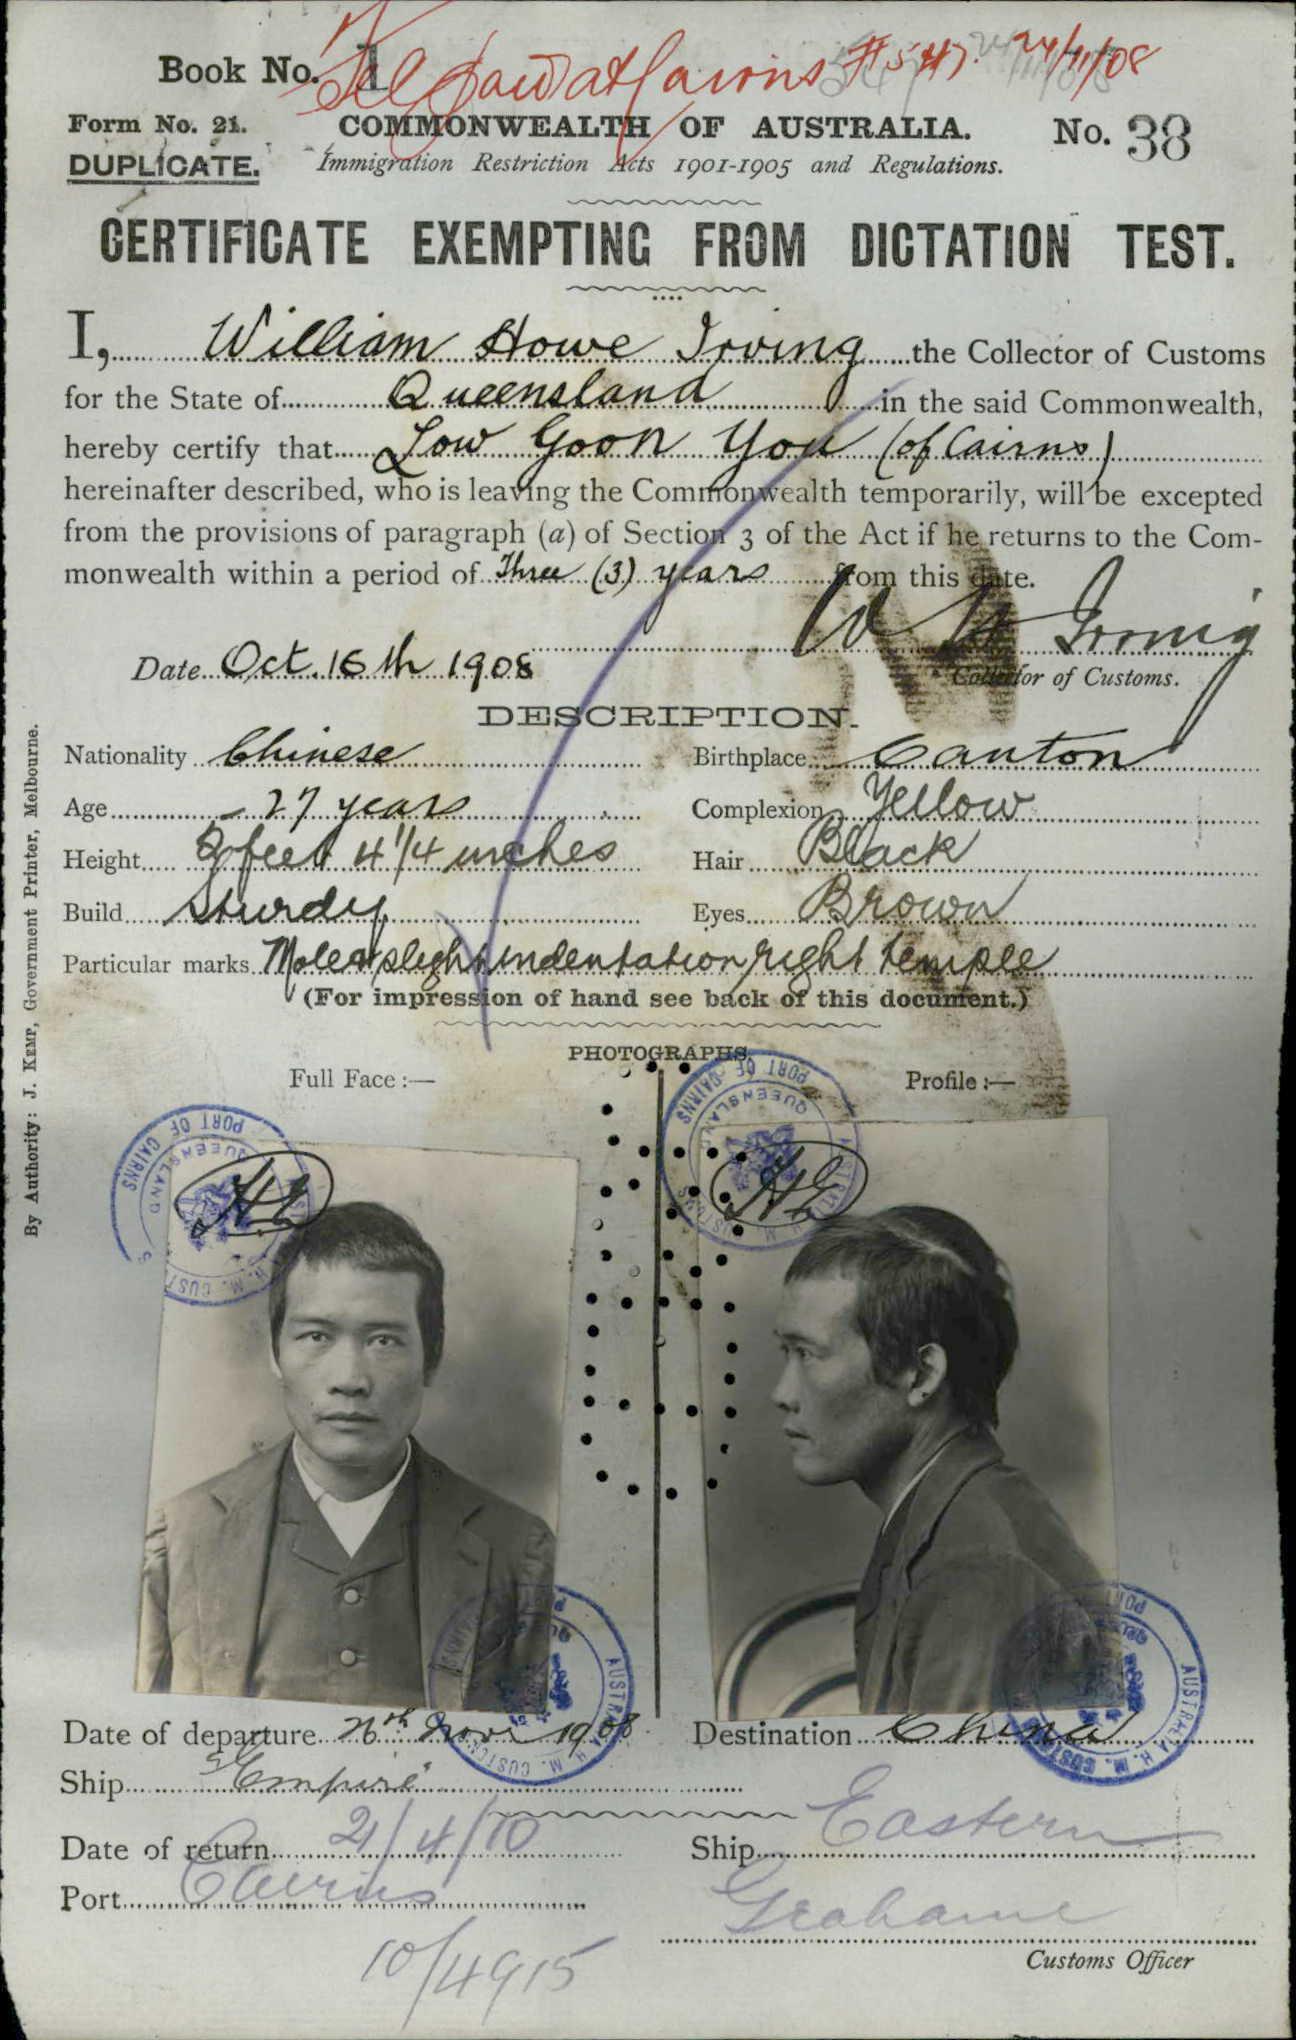 Book No. 1
Fee paid at Cairns £1 547. 24/11/08
Form No. 21. COMMONWEALTH OF AUSTRALIA. No. 38
DUPLICATE. Immigration Restriction Acts 1901-1905 and Regulations.
CERTIFICATE EXEMPTING FROM DICTATION TEST.
I, William Howe Irving the Collector of Customs
for the State of Queensland in the said Commonwealth,
hereby certify that Low Goon You (of Cairns)
hereinafter described, who is leaving the Commonwealth temporarily, will be excepted
from the provisions of paragraph (a) of Section 3 of the Act if he returns to the Com-
monwealth within a period of Three (3) years from this date.
W H Irving
Date Oct. 16th 1908 Collector of Customs.
DESCRIPTION.
Nationality Chinese Birthplace Canton
Age 27 years Complexion Yellow
Height 5 feet 4 1/4 inches Hair Black
Build Sturdy Eyes Brown
Particular marks Mole & slight indentation right temple
(For impression of hand see back of this document.)
PHOTOGRAPHS.
Full Face:— Profile:—
PORT OF CAIRNS
QUEENSLAND
AUSTRALIA H. M. CUSTOMS
PORT OF CAIRNS
QUEENSLAND
AUSTRALIA H. M. CUSTOMS
AUSTRALIA H. M. CUSTOMS
AUSTRALIA H. M. CUSTOMS
Date of departure 26th Nov 1908 Destination China
Ship "Empire"
Date of return 21/4/10 Ship Eastern
Port Cairns Grahame
Customs Officer
10/4915
By Authority: J. KEMP, Government Printer, Melbourne.